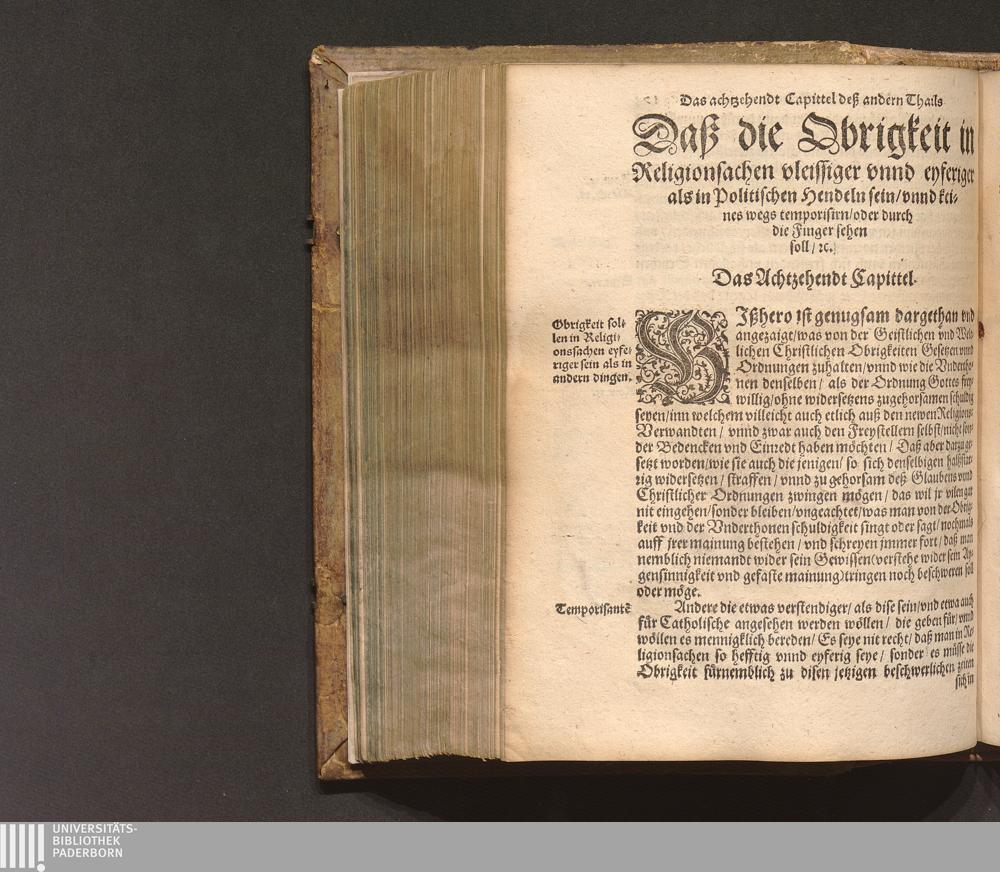 Das achtzehendt Capittel deß andern Thails
Daß die Obrigkeit in
Religionsachen vleissiger vnnd eyferiger
als in Politischen Hendeln sein/vnnd kei-
nes wegs temporisirn/oder durch
die Finger sehen
soll/ ꝛc.
Das Achtzehendt Capittel.
Obrigkeit sol-
len in Religi-
onssachen eyfe-
riger sein als in
andern dingen.
BIßhero ist genugsam dargethan vnd
angezaigt/was von der Geistlichen vnd Welt-
lichen Christlichen Obrigkeiten Gesetzen vnnd
Ordnungen zuhalten/vnnd wie die Vndertho-
nen denselben/ als der Ordnung Gottes frey-
willig/ohne widersetzens zugehorsamen schuldig
seyen/inn welchem villeicht auch etlich auß den newen Religions-
Verwandten/ vnnd zwar auch den Freystellern selbst/nicht son-
der Bedencken vnd Einredt haben möchten/ Daß aber darzu ge-
setzt worden/wie sie auch die jenigen/ so sich denselbigen halßstar-
rig widersetzen/ straffen/ vnnd zu gehorsam deß Glaubens vnnd
Christlicher Ordnungen zwingen mögen/ das wil jr vilen gar
nit eingehen/sonder bleiben/vngeachtet/was man von der Obrig-
keit vnd der Vnderthonen schuldigkeit singt oder sagt/ nochmals
auff jrer mainung bestehen/ vnd schreyen jmmer fort/ daß man
nemblich niemandt wider sein Gewissen(verstehe wider sein Ay-
gensinnigkeit vnd gefaste mainung)tringen noch beschweren soll
oder möge.
Temporisantē
Andere die etwas verstendiger/ als dise sein/vnd etwa auch
für Catholische angesehen werden wöllen/ die geben für/ vnnd
wöllen es mennigklich bereden/ Es seye nit recht/ daß man in Re-
ligionsachen so hefftig vnnd eyferig seye/ sonder es müsse die
Obrigkeit fürnemblich zu disen jetzigen beschwerlichen zeiten
sich in
UNIVERSITÄTS-
BIBLIOTHEK
PADERBORN